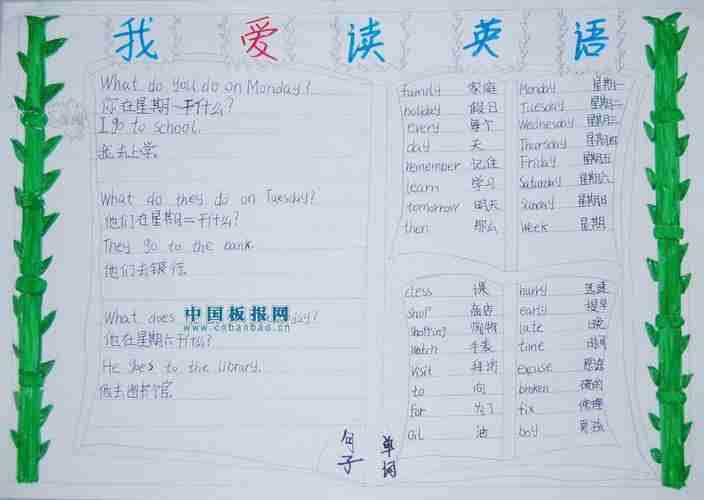 我爱读英语
What do you do on Monday?
你在星期一干什么?
I go to school.
我去上学。
What do they do on Tuesday?
他们在星期二干什么?
They go to the bank.
他们去银行.
What does day?
他在星期六干什么?
He goes to the library.
他去图书馆.
中国板报网
www.cnbanbao.cn
句子
family 家庭
holiday 假日
every 每个
day 天
remember 记住
learn 学习
tomorrow 明天
then 那么
Monday 星期一
Tuesday 星期二
Wednesday 星期三
Thursday 星期四
Friday 星期五
Saturday 星期六
Sunday 星期日
week 星期
cless 课
shop 商店
shopping 购物
watch 手表
visit 拜访
to 向
for 为了
oil 油
hurry
early 提早
late
time 时间
excuse 原谅
broken 破的
fix 修理
boy 男孩
单词